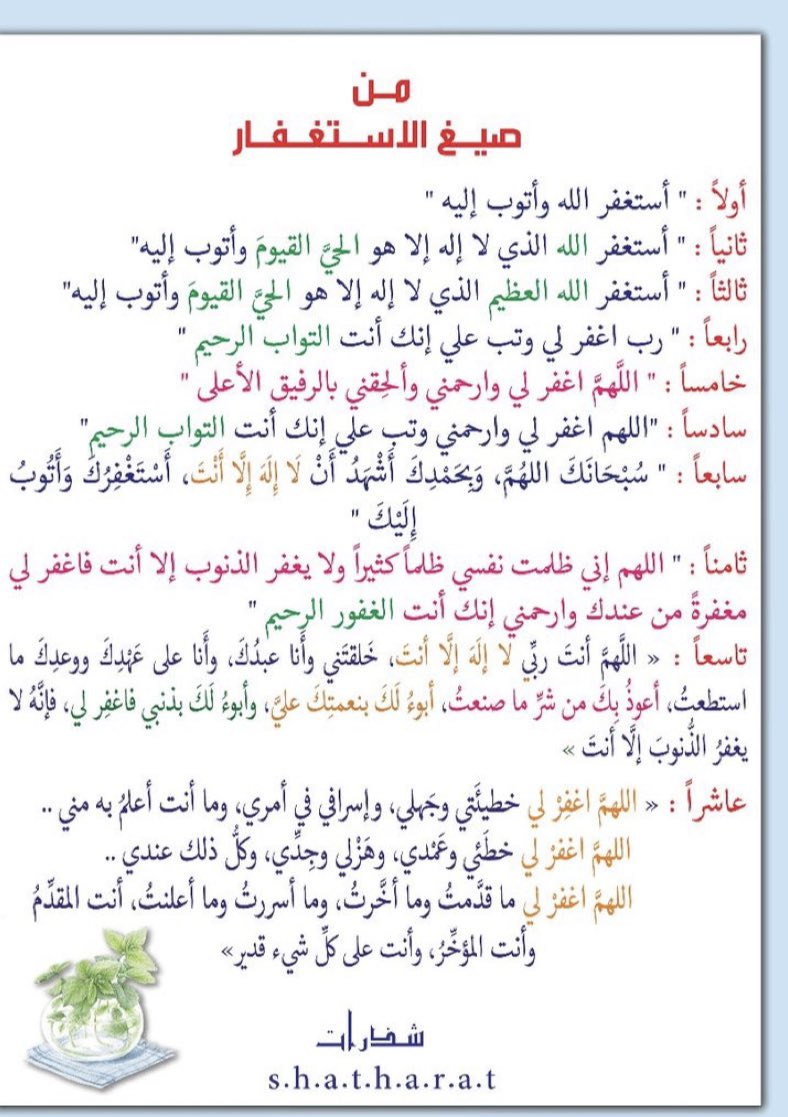 من
صيغ الاستغفار
أولاً : " أستغفر الله وأتوب إليه "
ثانياً : " أستغفر الله الذي لا إله إلا هو الحيَّ القيومَ وأتوب إليه"
ثالثاً : " أستغفر الله العظيم الذي لا إله إلا هو الحيَّ القيومَ وأتوب إليه"
رابعاً : " رب اغفر لي وتب علي إنك أنت التواب الرحيم "
خامساً : " اللَّهمَّ اغفر لي وارحمني وألحِقني بالرفيق الأعلى "
سادساً : "اللهم اغفر لي وارحمني وتب علي إنك أنت التواب الرحيم"
سابعاً : " سُبْحَانَكَ اللهُمَّ، وَبِحَمْدِكَ أَشْهَدُ أَنْ لَا إِلَهَ إِلَّا أَنْتَ، أَسْتَغْفِرُكَ وَأَتُوبُ
إِلَيْكَ "
ثامناً : " اللهم إني ظلمت نفسي ظلماً كثيراً ولا يغفر الذنوب إلا أنت فاغفر لي
مغفرةً من عندك وارحمني إنك أنت الغفور الرحيم "
تاسعاً : « اللَّهمَّ أنتَ ربِّي لا إلَهَ إلَّا أنتَ، خَلقتَني وأَنا عبدُكَ، وأَنا على عَهْدِكَ ووعدِكَ ما
استطعتُ، أعوذُ بِكَ من شرِّ ما صنعتُ، أبوءُ لَكَ بنعمتِكَ عليَّ، وأبوءُ لَكَ بذنبي فاغفِر لي، فإنَّهُ لا
يغفرُ الذُّنوبَ إلَّا أنتَ »
عاشراً : « اللهمَّ اغفِرْ لي خطيئَتي وجَهلي، وإسرافي في أمري، وما أنت أعلمُ به مني ..
اللهمَّ اغفرْ لي خطَئي وعَمْدي، وهَزْلي وجِدِّي، وكلُّ ذلك عندي ..
اللهمَّ اغفرْ لي ما قدَّمتُ وما أخَّرتُ، وما أسررتُ وما أعلنتُ، أنت المقدِّمُ
وأنت المؤخِّرُ، وأنت على كلِّ شيء قدير»
شذرات
s.h.a.t.h.a.r.a.t